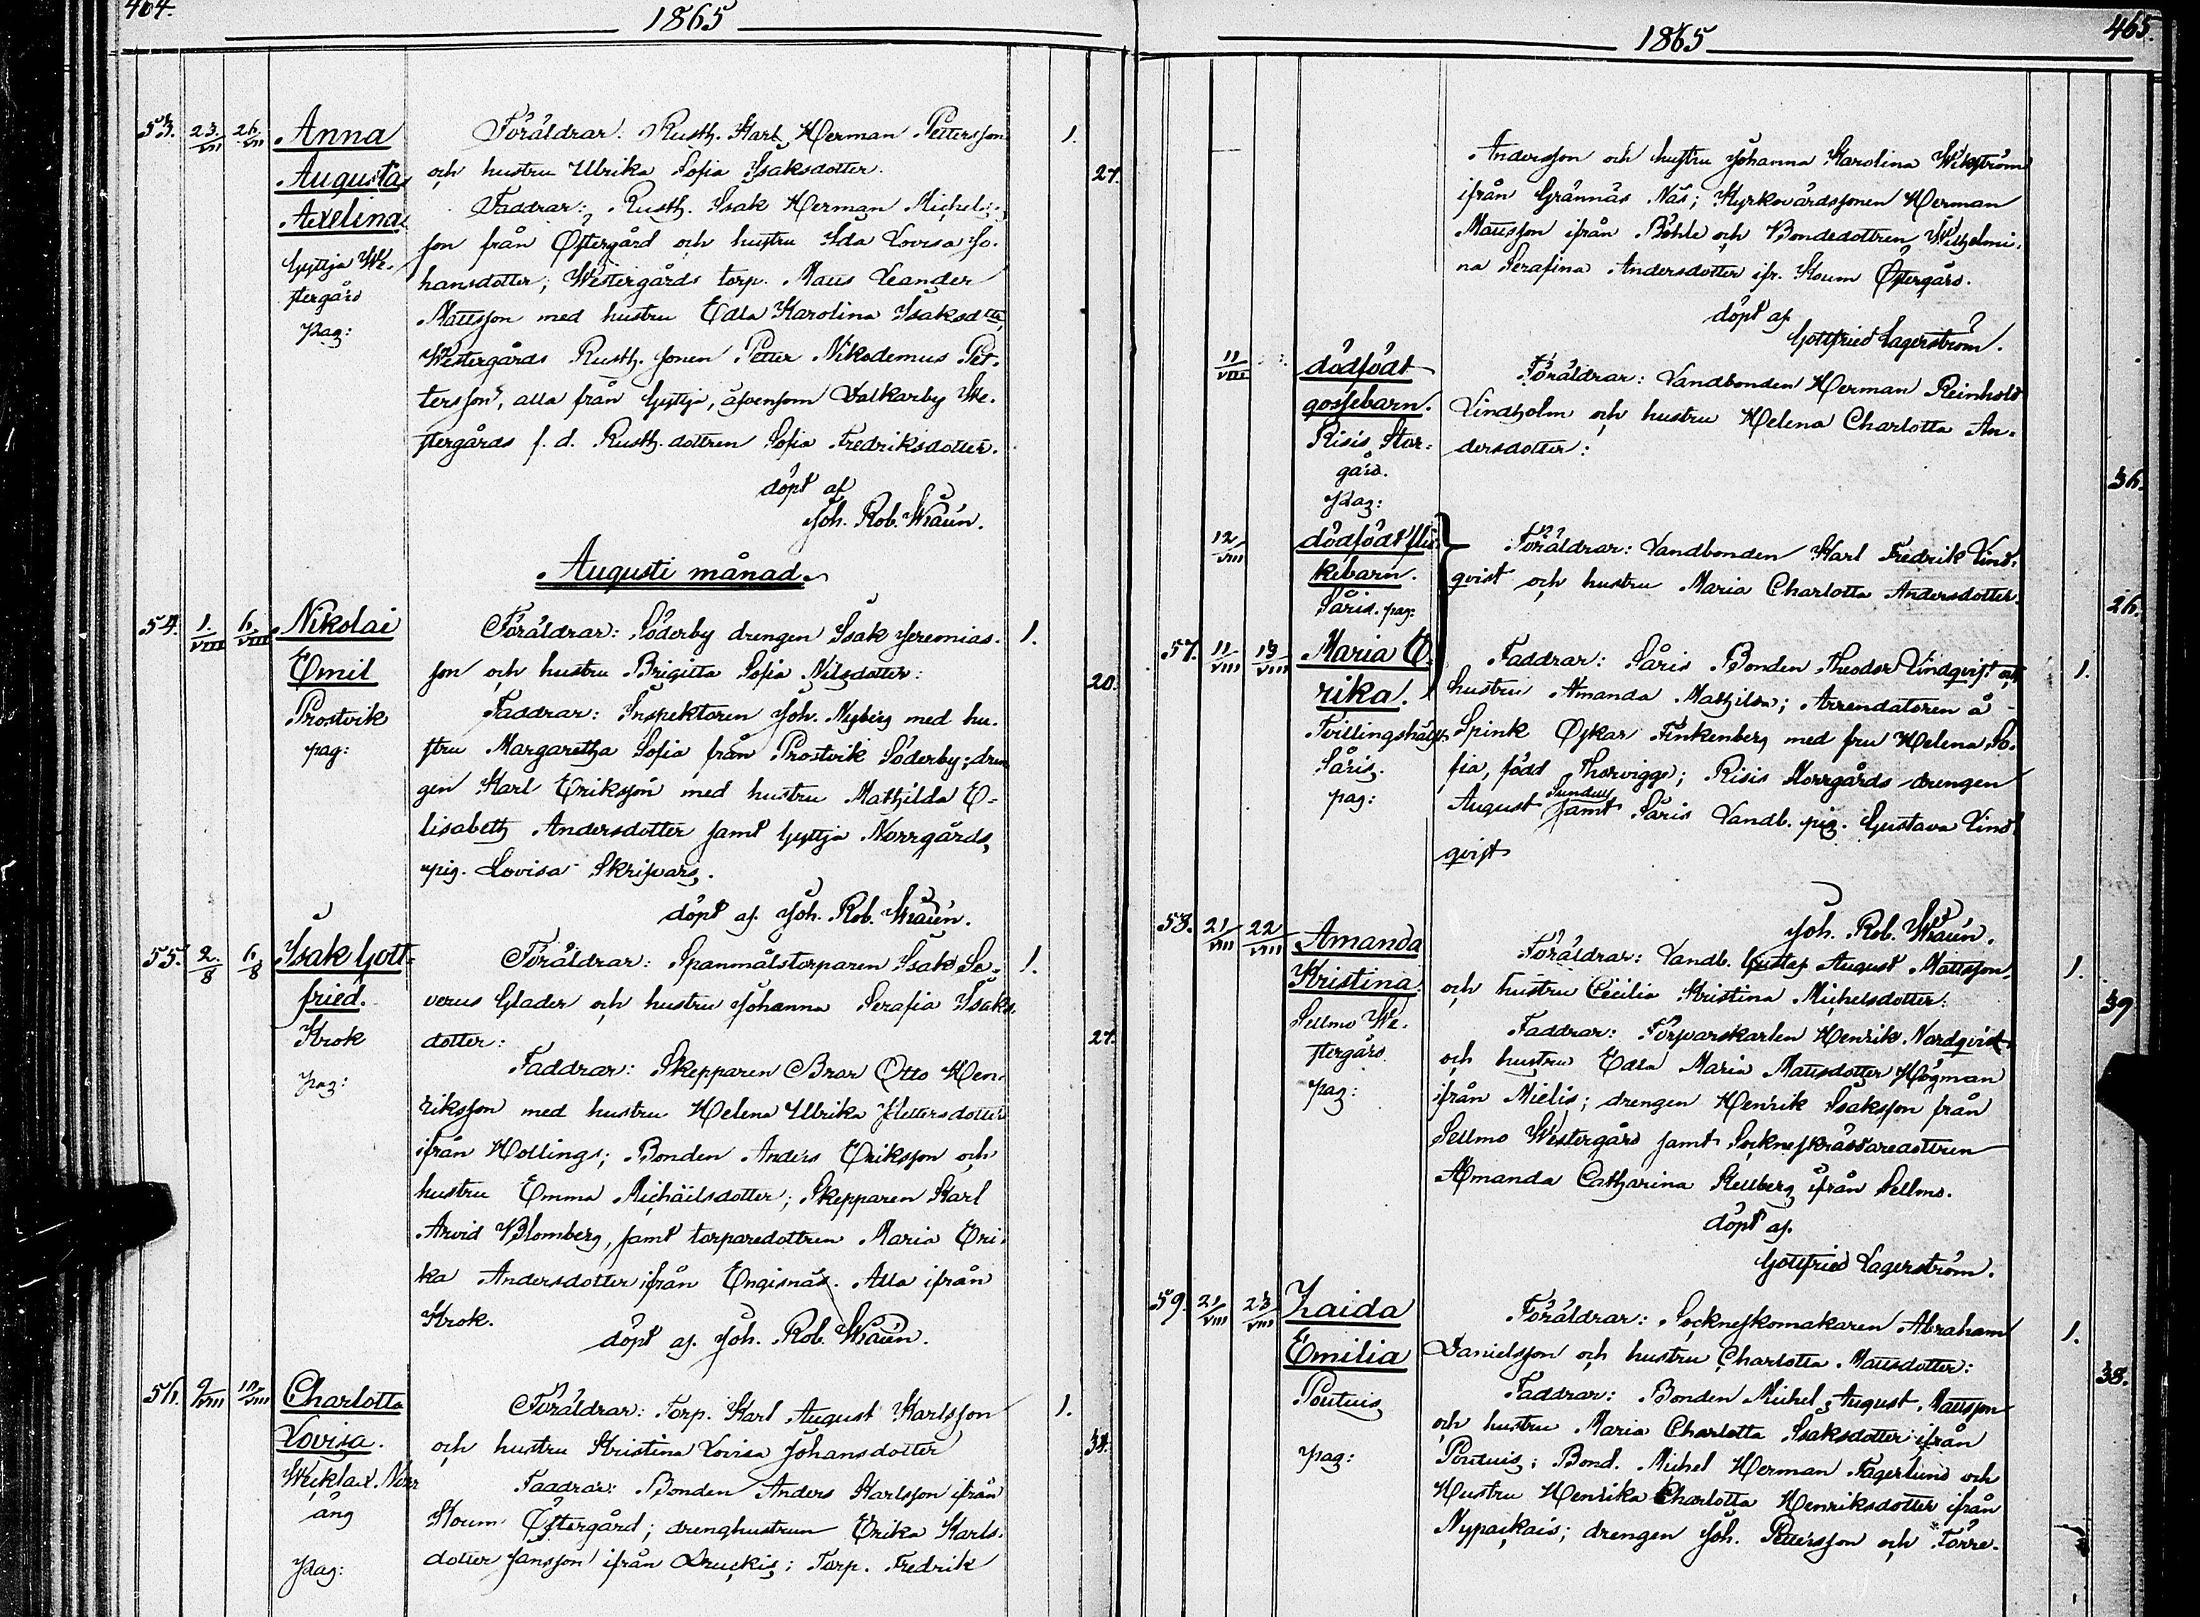 464.
1865
53. 23/VII 26/VII Anna Föräldrar: Rusth. Karl Herman Pettersson 1.
Augusta och hustru Ulrika Sofia Isaksdotter. 27.
Axelina Faddrar: Rusth. Isak Herman Michels-
Gyttja We- son från Östergård och hustru Ida Lovisa Jo-
stergård hansdotter; Westergårds torp. Maus Leander
pag: Mattsson med hustru Edla Karolina Isaksdttr,
Westergårds Rusth. sonen Petter Nikodemus Pet-
tersson, alla från Gyttja, äfvensom Valkarby We-
stergårds f. d. Rusth. dottren Sofia Fredriksdotter.
döpt af
Joh. Rob. Wraún.
Augusti månad.
54. 1./VIII 6/VIII Nikolai Föräldrar: Söderby drengen Isak Jeremias- 1.
Emil son och hustru Brigitta Sofia Nilsdotter: 20.
Prostvik Faddrar: Inspektoren Joh. Nyberg med hu-
pag: stru Margaretha Sofia från Prostvik Söderby; dren
gen Karl Eriksson med hustru Mathilda E-
lisabeth Andersdotter samt Gyttja Norrgårds,
pig. Lovisa Skrifvars.
döpt af Joh. Rob. Wraún.
55. 2./8 6/8 Isak Gott- Föräldrar: Spanmålstorparen Isak Se- 1.
fried. verus Glader och hustru Johanna Serafia Isaks-
Krok dotter: 27.
pag: Faddrar: Skepparen Bror Otto Hen-
riksson med hustru Helena Ulrika Pettersdotter
ifrån Hollings; Bonden Anders Eriksson och
hustru Emma Michäilsdotter; Skepparen Karl
Arvid Blomberg, samt torparedottren Maria Eri-
ka Andersdotter ifrån Engisnäs. Alla ifrån
Krok.
döpt af Joh. Rob. Wraún.
56. 9/VIII 10/VIII Charlotta Föräldrar: Torp. Karl August Karlsson 1.
Lovisa. och hustru Kristina Lovisa Johansdotter 34.
Wecklax. Norr Faddrar: Bonden Anders Karlsson ifrån
äng Koum Östergård; drenghustrun Erika Karls-
pag: dotter Jansson ifrån Druckis; Torp. Fredrik
465.
1865
Andersson och hustru Johanna Karolina Wikström
ifrån Grännäs Näs; Kyrkovärdssonen Herman
Mausson ifrån Böhle och Bondedottren Wilhelmi-
na Serafina Andersdotter ifr. Koum Östergård.
döpt af
Gottfried Lagerström.
11/VIII dödfödt Föräldrar: Landbonden Herman Reinhold
gossebarn. Lindholm och hustru Helena Charlotta An-
Risis Stor- dersdotter:
gård. 36.
pag:
12/VIII dödfödt flic- Föräldrar: Landbonden Karl Fredrik Lind-
kebarn. qvist och hustru Maria Charlotta Andersdotter.
Såris. pag: 26.
57. 11/VIII 13/VIII Maria E- Faddrar: Såris Bonden Theodor Lindqvist och 1.
rika. hustru Amanda Mathilda; Arrendatoren å
Tvillingshälft Spink Oskar Finkenberg med fru Helena So-
Såris. fia, född Thorviggo; Risis Norrgårds drengen
pag: August Sundius samt Såris Landb. pig. Gustava Lind
qvist
Joh. Rob. Wraún.
58. 21/VIII 22/VIII Amanda Föräldrar: Landb. Gustaf August Mattsson, 1.
Kristina. och hustru Cecilia Kristina Michelsdotter. 39
Sellmo We- Faddrar: Försvarskarlen Henrik Nordqvist
stergård och hustru Edla Maria Mattsdotter Högman
pag: ifrån Mielis; drengen Henrik Isaksson från
Sellmo Westergård samt Sockneskräddaredottren
Amanda Catharina Kellberg ifrån Sellmo.
döpt af.
Gottfried Lagerström.
59. 21/VIII 23/VIII Zaida Föräldrar: Sockneskomakaren Abraham 1.
Emilia Danielsson och hustru Charlotta Mattsdotter: 38.
Poutuis Faddrar: Bonden Michel August Mattsson
och hustru Maria Charlotta Isaksdotter ifrån
pag: Poutuis; Bond. Michel Herman Fagerlund och
Hustru Henrika Charlotta Henriksdotter ifrån
Nypackais; drengen Joh. Pettersson och Torre-